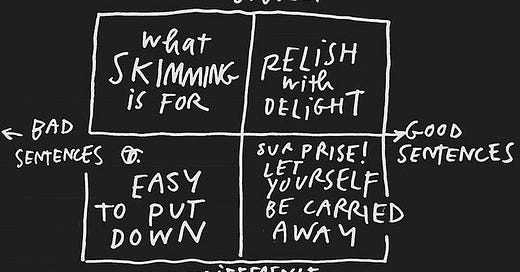 what
SKIMMING
iS FOR
RELiSH
with
DELiGHT
BAD
SENTENCES
GOOD
SENTENCES
EASY
TO PUT
DOWN
SURPRISE!
LET
YOURSELF
BE CARRIED
AWAY